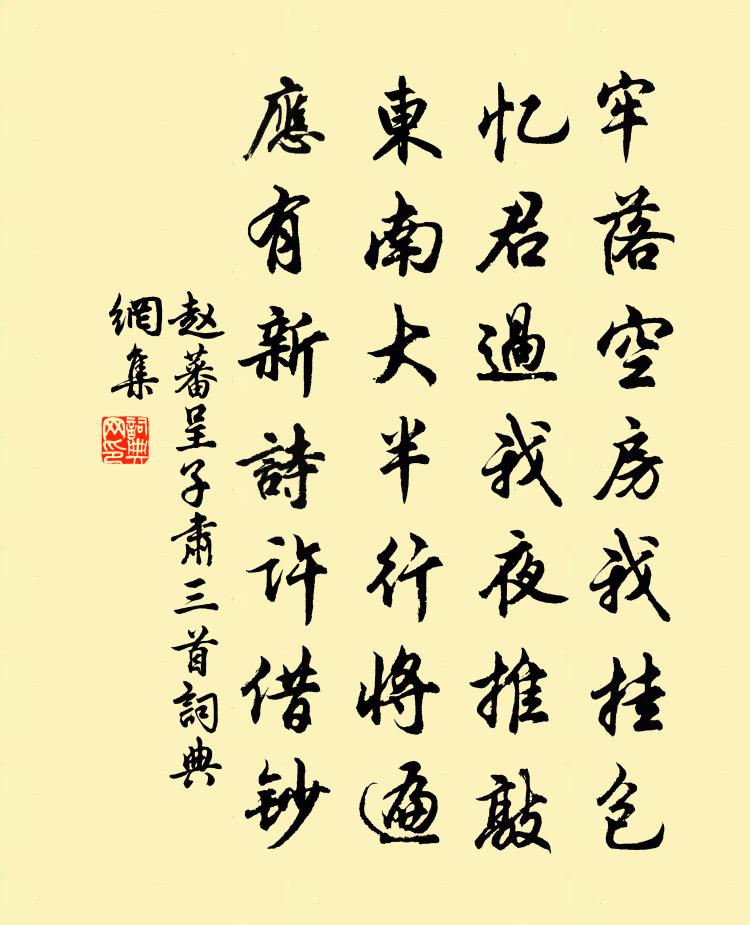 牢落空房我挂包
忆君過我夜推敲
東南大半行將遍
應有新詩許借鈔
赵蕃呈子肅三首詞典
網集
詞典
网印